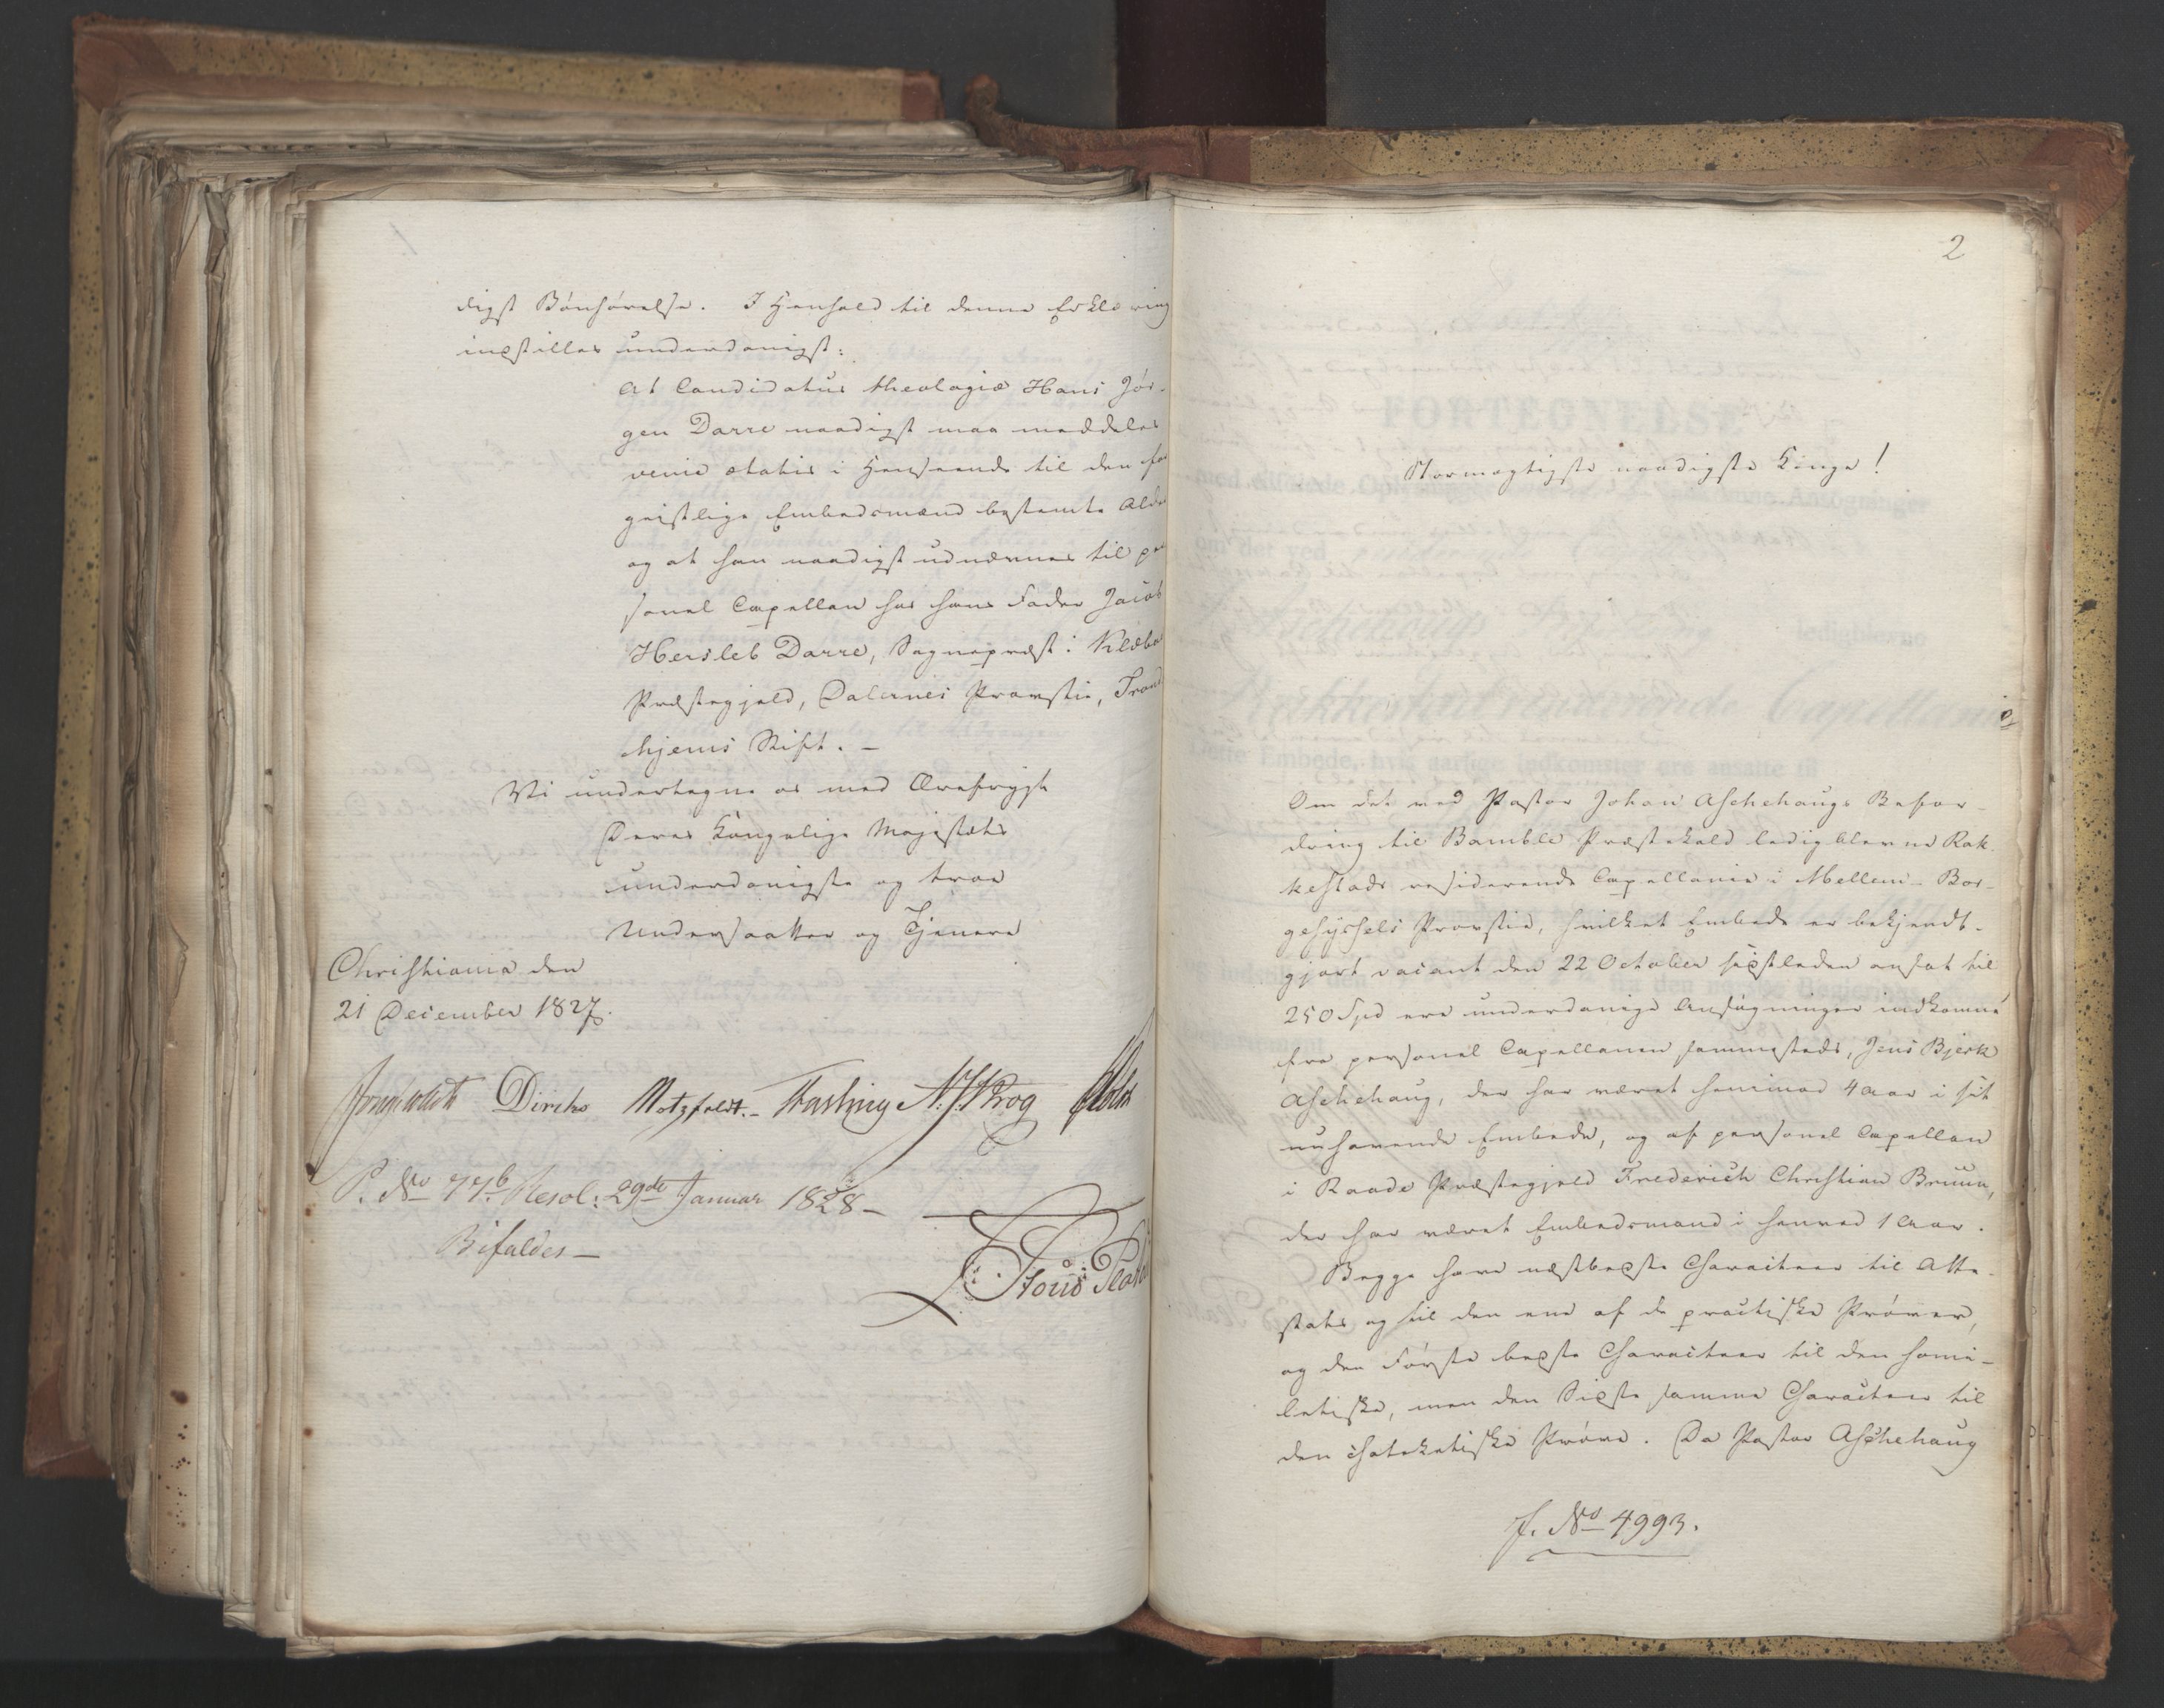 digst Bønhørelse. I Henhold til denne Erklæring
indstilles underdanigst:
At Candidatus theologiæ Hans Jør-
gen Darre naadigst maa meddeles
venia ætatis i Henseende til den for
geistlige Embedsmænd bestemte Alder
og at han naadigst udnævnes til per
sonel Capellan hos hans Fader Jacob
Hersleb Darre, Sognepræst i Klæbo
Præstegjeld, Dalernes Provstie, Trond
hjems Stift. –
Vi undertegne os med Ærefrygt
Deres Kongelige Majestæts
underdanigste og troe
Undersaatter og Tjenere
Christiania den
21 December 1827.
Diriks Motzfeldt. Fasting Krog Holst
P. No 77b. Resol: 29de Januar 1828 –
Bifaldes –
2
Stormægtigste naadigste Konge!
Om det ved Pastor Johan Aschehougs Befor-
dring til Bamble Præstekald ledigblevne Rak-
kestads residerende Capellanie i Mellem-Bor-
gesyssels Provstie, hvilket Embede er bekjendt-
gjort vacant den 22 October sidstleden ansat til
250 Spd ere underdanige Ansøgninger indkomne
fra personel Capellanen sammesteds, Jens Bjerk
Aschehoug, der har været henimod 4 Aar i sit
nuhavende Embede, og af personel Capellan
i Raade Præstegjeld Frederich Christian Bruun,
der har været Embedsmand i henved 1 Aar.
Begge have næstbedste Characteer til Atte-
stats og til den ene af de practiske Prøver,
og den Første bedste Characteer til den homi-
letiske, men den Sidste samme Characteer til
den chateketiske Prøve. Da Pastor Aschehoug
J. No 4993.